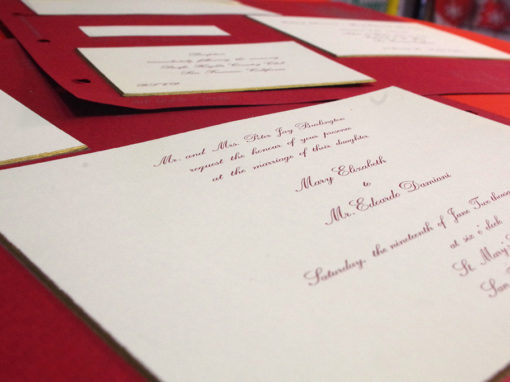 Reception
immediately following the ceremony
Country Club
San Francisco, California
R.S.V.P.
Mr. and Mrs. Peter Jay Burlington
request the honour of your presence
at the marriage of their daughter
Mary Elizabeth
to
Mr. Edoardo Damiani
Saturday, the nineteenth of June Two thous
at six o'clock
St. Mary's
San